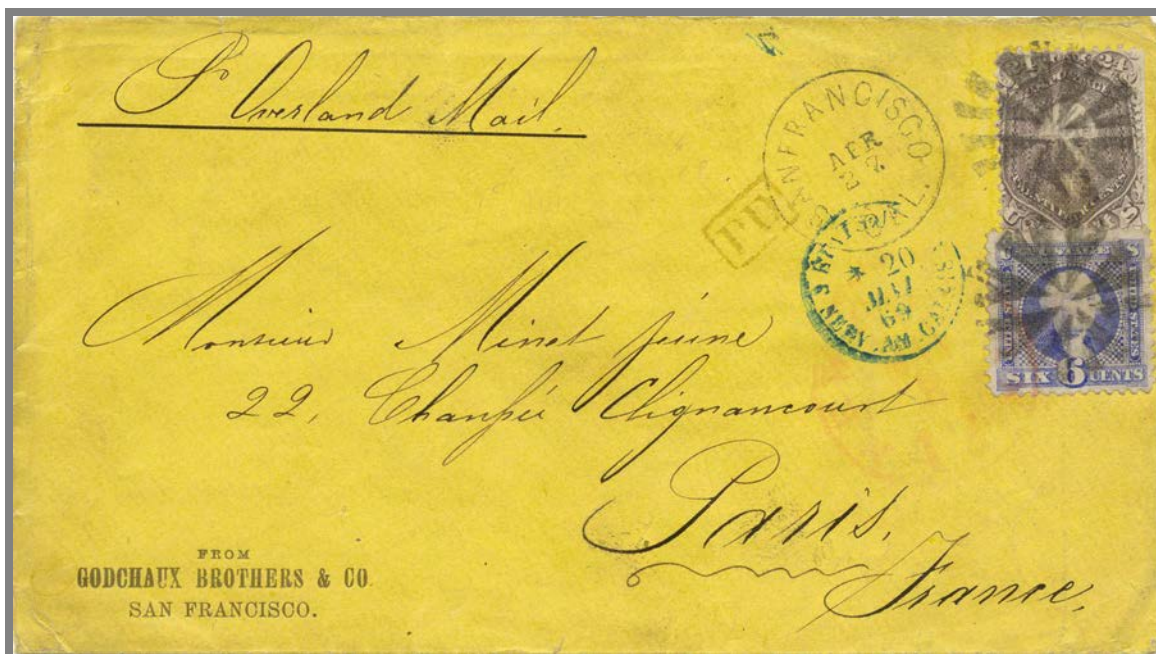 Pr Overland Mail.
SAN FRANCISCO
APR
27
CAL.
PD
* 20
MAI
69
CALAIS
24
U S
SIX 6 CENTS
UNITED STATES
Monsieur Minet jeune
22, Chaussée Clignancourt
Paris.
France.
FROM
GODCHAUX BROTHERS & CO.
SAN FRANCISCO.